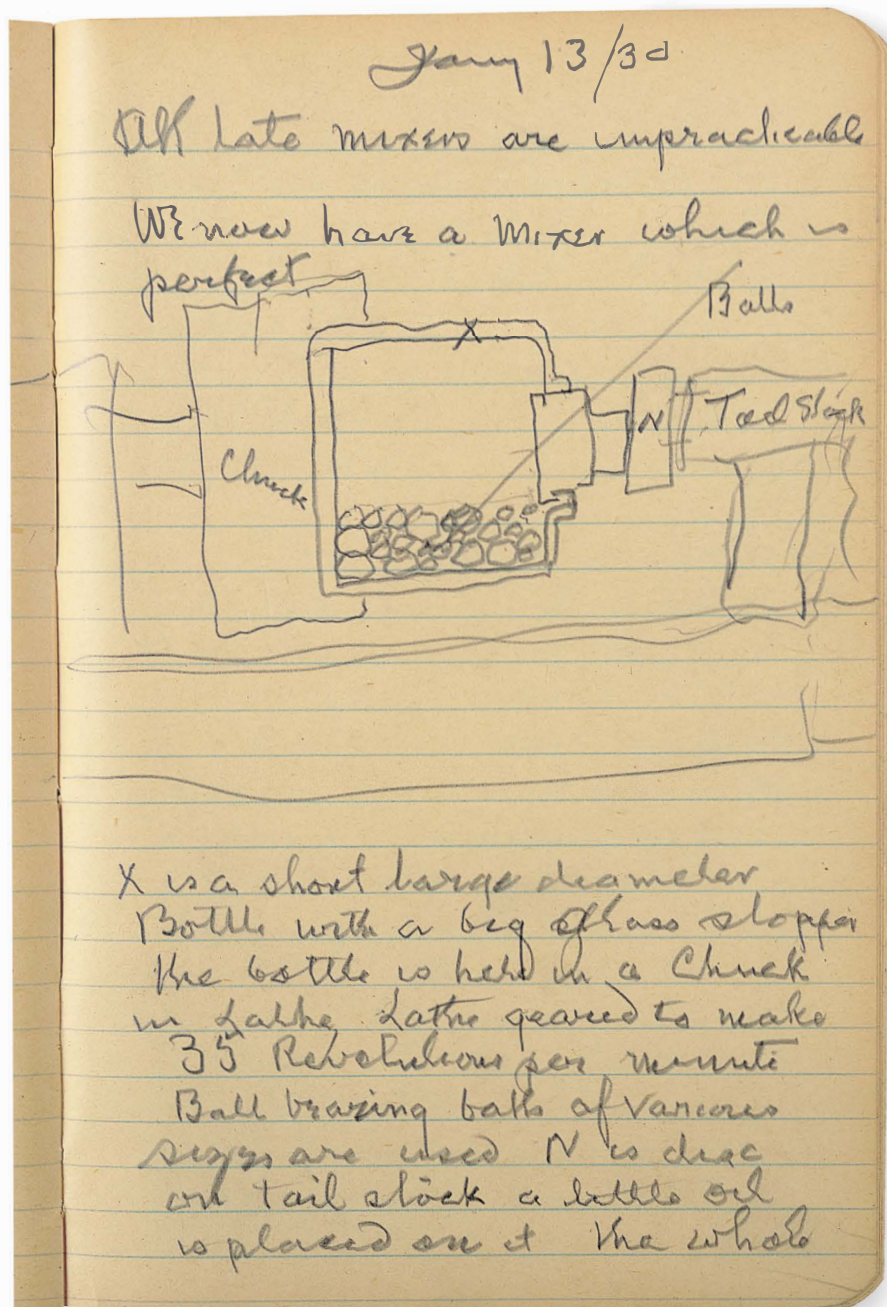 Jany 13/30
All late mixers are impracticable
We now have a Mixer which is
perfect
Balls
Chuck
X
N
Tail Stock
X is a short large diameter
Bottle with a big glass stopper
the bottle is held in a Chuck
in Lathe Lathe geared to make
35 Revolutions per minute
Ball bearing balls of various
sizes are used N is disc
on tail stock a little oil
is placed on it the whole